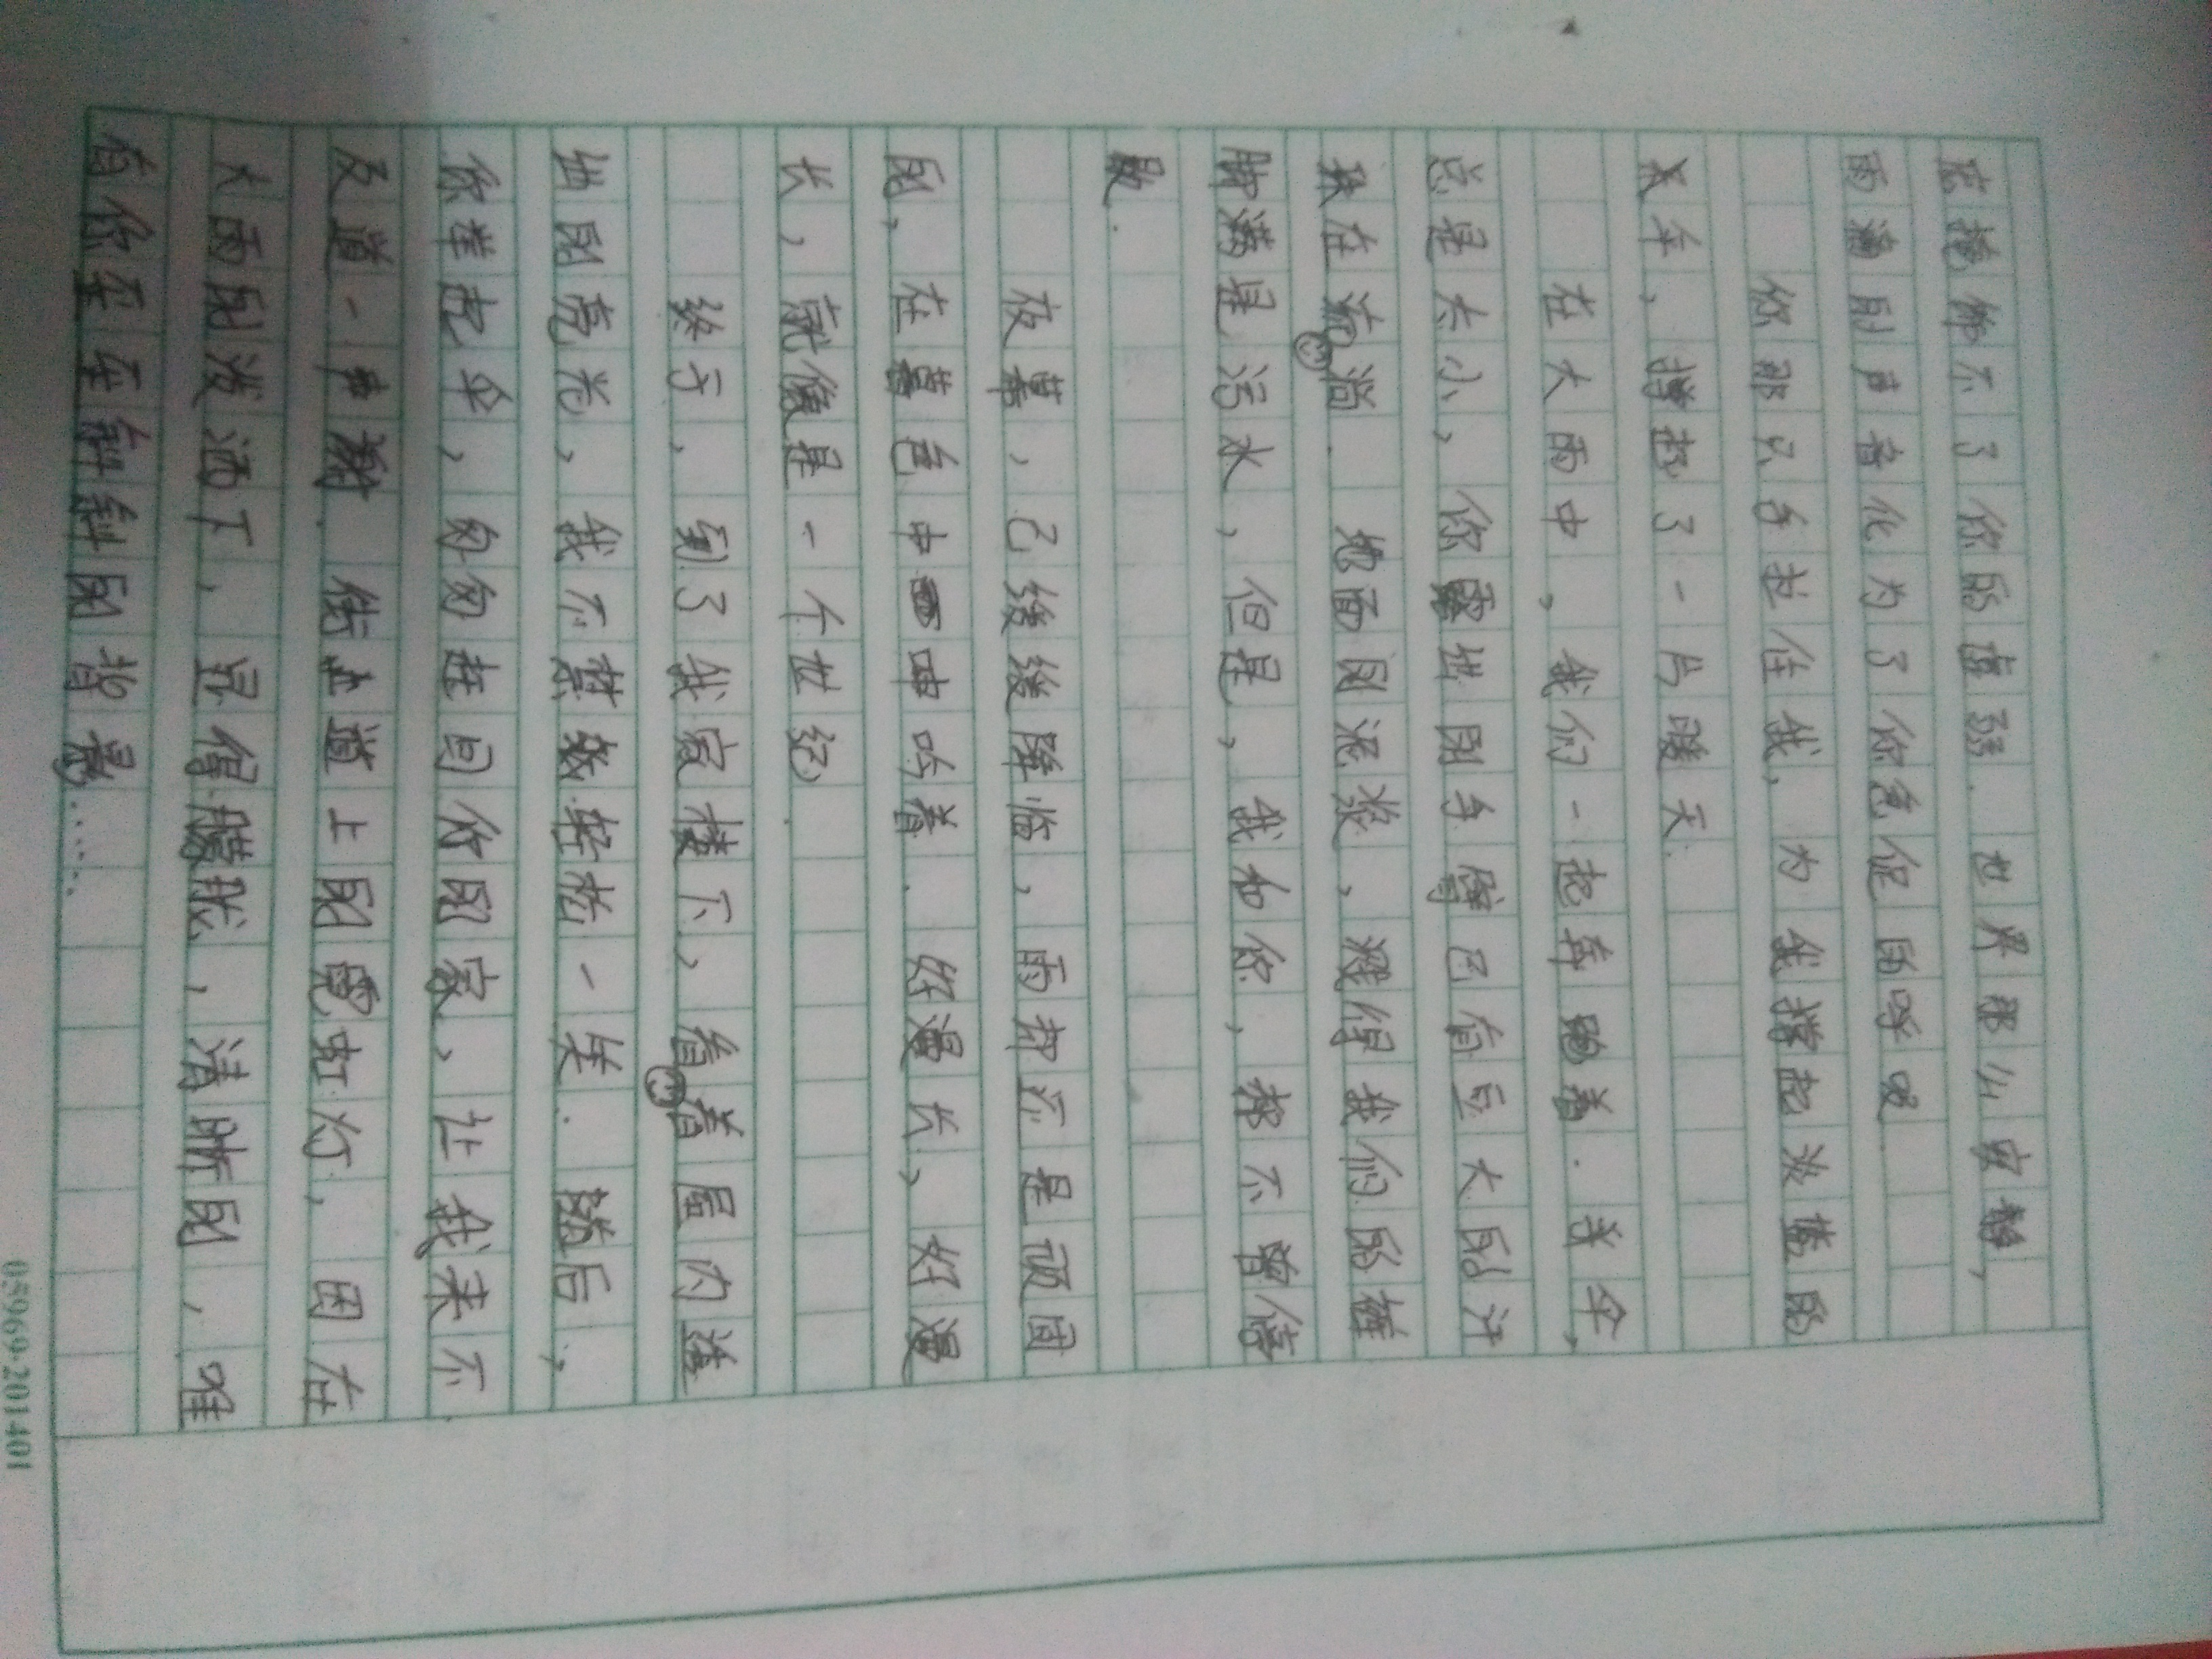 忘掩饰不了你的虚弱.世界那么安静,
雨滴的声音化为了你急促的呼吸.
你那只手拉住我,为我撑起沉重的
伞,撑起了一片暖天.
在大雨中,我们一起奔跑着.伞,
总是太小,你露出的手臂已有豆大的汗
珠在流淌.地面的泥浆,溅得我们的裤
脚满是污水,但是,我和你,都不曾停
歇.
夜幕,已缓缓降临,雨却还是顽固
的,在暮色中呻吟着.好漫长,好漫
长,就像是一个世纪.
终于,到了我家楼下,看着屋内溢
出的亮光,我不禁微轻松一笑.随后,
你举起伞,匆匆赶回你的家,让我来不
及道一声谢.街道上的霓虹灯,因在
大雨的泼洒下,显得朦胧,清晰的,唯
有你歪歪斜斜的背影……
05969·201401